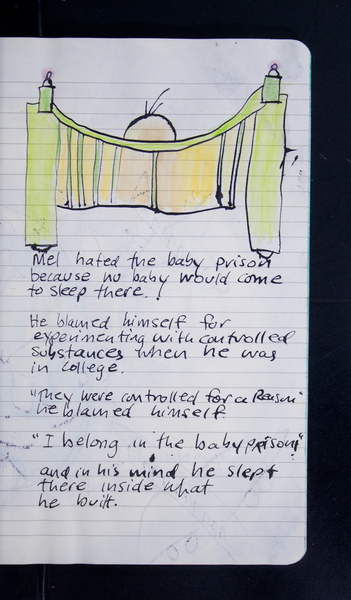 Mel hated the baby prison
because no baby would come
to sleep there.
He blamed himself for
experimenting with controlled
substances when he was
in college.
"They were controlled for a Reason"
he blamed himself
"I belong in the baby prison"
and in his mind he slept
there inside what
he built.